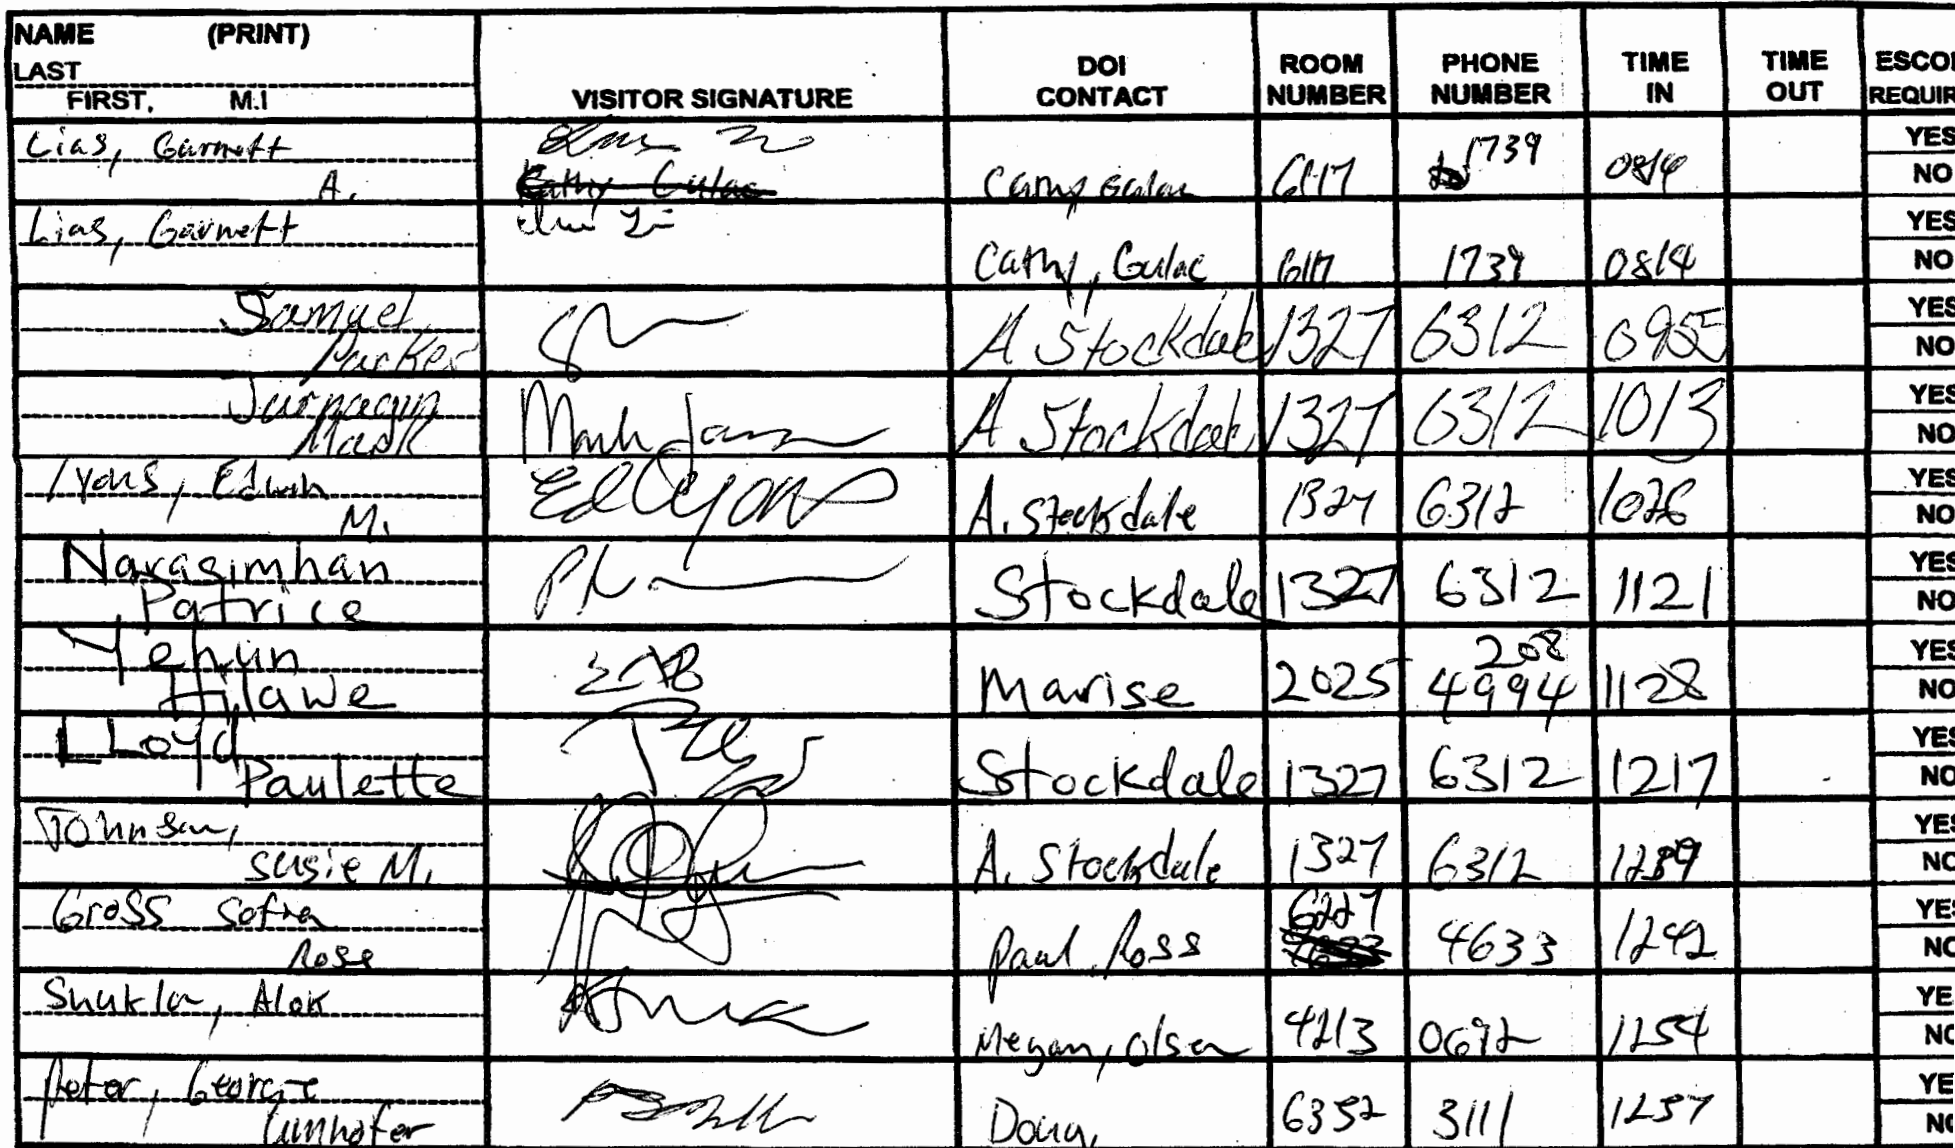 NAME (PRINT)
LAST
FIRST, M.I
VISITOR SIGNATURE
DOI CONTACT
ROOM NUMBER
PHONE NUMBER
TIME IN
TIME OUT
ESCO
REQUIR
Lias, Garnett
A.
Cathy Gulac
6117 1739 0814
YES
NO
Lias, Garnett
Cathy, Gulac 6117 1739 0814
YES
NO
Samuel
Parker
A Stockdale 1327 6312 0955
YES
NO
Jurnagin
Mark
A Stockdale 1327 6312 1013
YES
NO
Lyons, Edwin
M.
Ed Lyons
A. Stockdale 1327 6312 1026
YES
NO
Narasimhan
Patrice
Stockdale 1327 6312 1121
YES
NO
Yehun
Hilawe
Marise 2025 208 4994 1128
YES
NO
Lloyd
Paulette
Stockdale 1327 6312 1217
YES
NO
Johnson,
Susie M.
A. Stockdale 1327 6312
YES
NO
Gross Sofia
Rose
Paul Ross 6227 4633 1242
YES
NO
Shukla, Alok
Megan, Olsen 4213 0692 1254
YE
NO
Peter, George
Umhofer
Doug, 6352 3111 1257
YE
NO